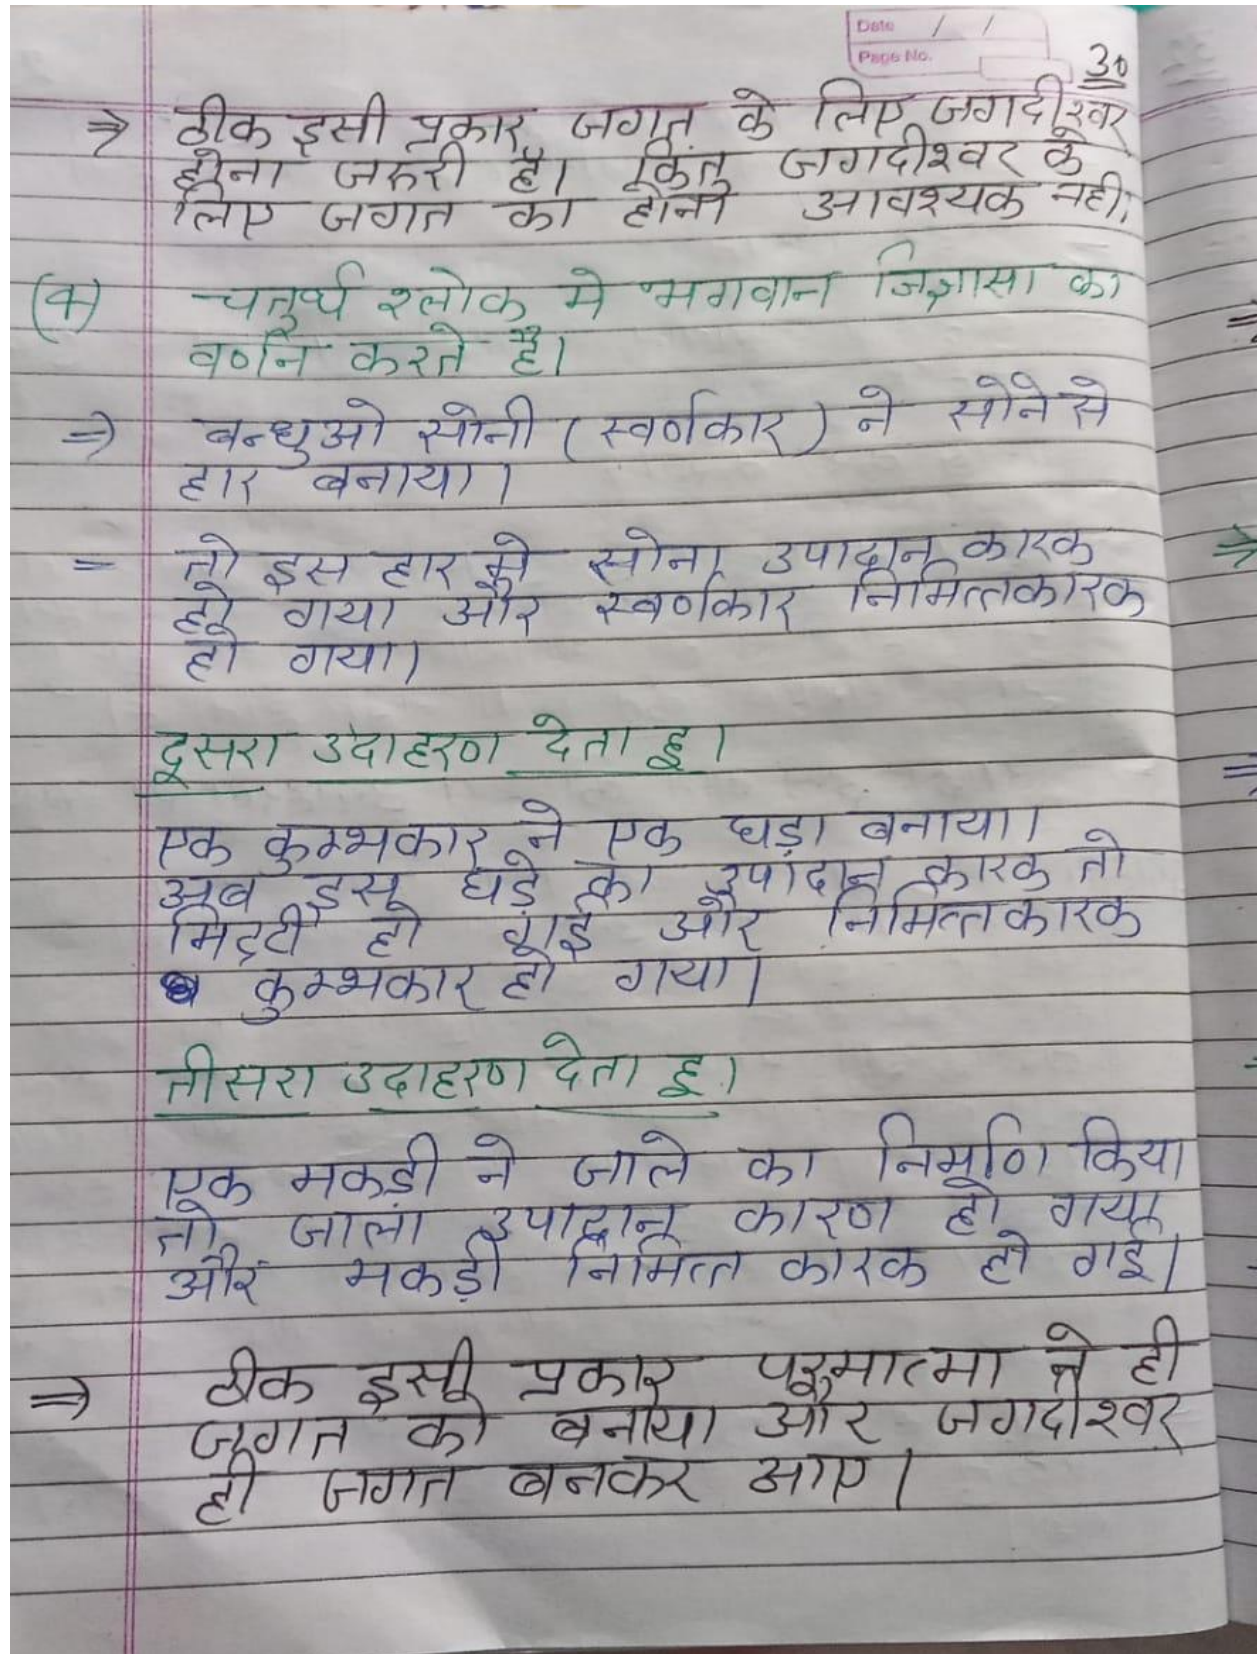 Date / /
Page No.
30
⇒ ठीक इसी प्रकार जगत के लिए जगदीश्वर
होना जरुरी है। किंतु जगदीश्वर के
लिए जगत का होना आवश्यक नही।
(4) चतुर्थ श्लोक मे भगवान जिज्ञासा का
वर्णन करते है।
⇒ बन्धुओ सोनी (स्वर्णकार) ने सोने से
हार बनाया।
= तो इस हार मे सोना उपादान कारक
हो गया और स्वर्णकार निमित्तकारक
हो गया।
दूसरा उदाहरण देता हू।
एक कुम्भकार ने एक घड़ा बनाया।
अब इस घड़े का उपादान कारक तो
मिट्टी हो गई और निमित्तकारक
कुम्भकार हो गया।
तीसरा उदाहरण देता हू।
एक मकडी ने जाले का निर्माण किया
तो जाला उपादान कारण हो गया
और मकड़ी निमित्त कारक हो गई।
⇒ ठीक इसी प्रकार परमात्मा ने ही
जगत को बनाया और जगदीश्वर
ही जगत बनकर आए।